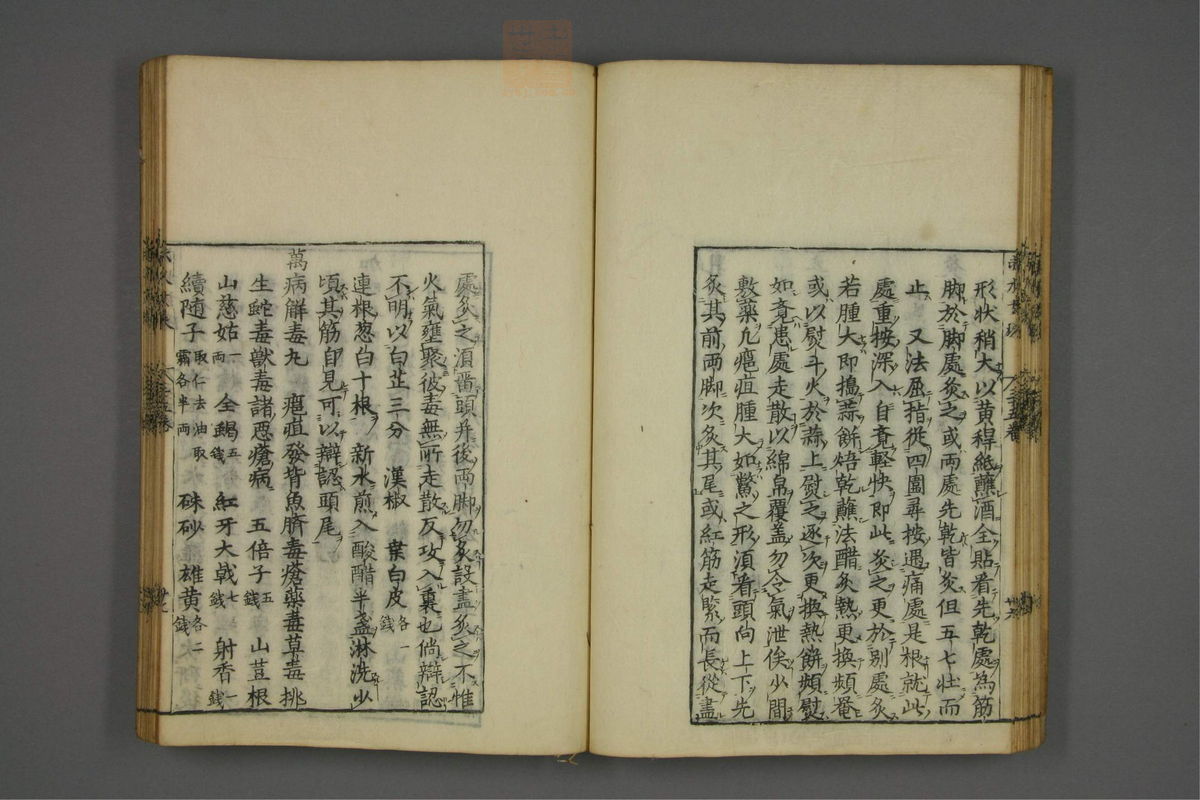 形状稍大以黄稈紙蘸酒全貼看先乾處為筋
脚於脚處灸之或兩處先乾皆灸但五七壯而
止　又法屈指從四圍尋按遇痛處是根就此
處重按深入自覚輕快即此灸之更於别處灸
若腫大即搗蒜餅焙乾蘸法醋灸熱更換頻罨
或以熨斗火於蒜上熨之逐次更換熱餅頻熨
如覚患處走散以綿帛覆盖勿令氣泄俟少間
敷藥凢瘡疽腫大如鱉之形湏看頭向上下先
灸其前兩脚次灸其尾或紅筋走緊而長從盡
處灸之湏留頭并後兩脚勿灸設盡灸之不惟
火氣壅聚彼毒無所走散反攻入裏也倘辯認
不明以白芷三分　漢椒　桑白皮各一錢
連根葱白十根　新水煎入酸醋半盞淋洗少
頃其筋自見可以辯認頭尾
萬病解毒丸　瘡疽發背魚臍毒瘡藥毒草毒挑
生蛇毒獸毒諸惡瘡病　五倍子五錢　山荳根
山慈姑一兩　全蝎五錢　紅牙大戟七錢　射香一錢
續随子取仁去油取霜各半兩　硃砂　雄黄各二錢